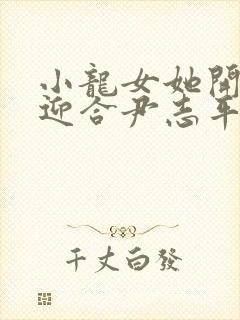 小龍女她開
迎合尹志平
千丈白發